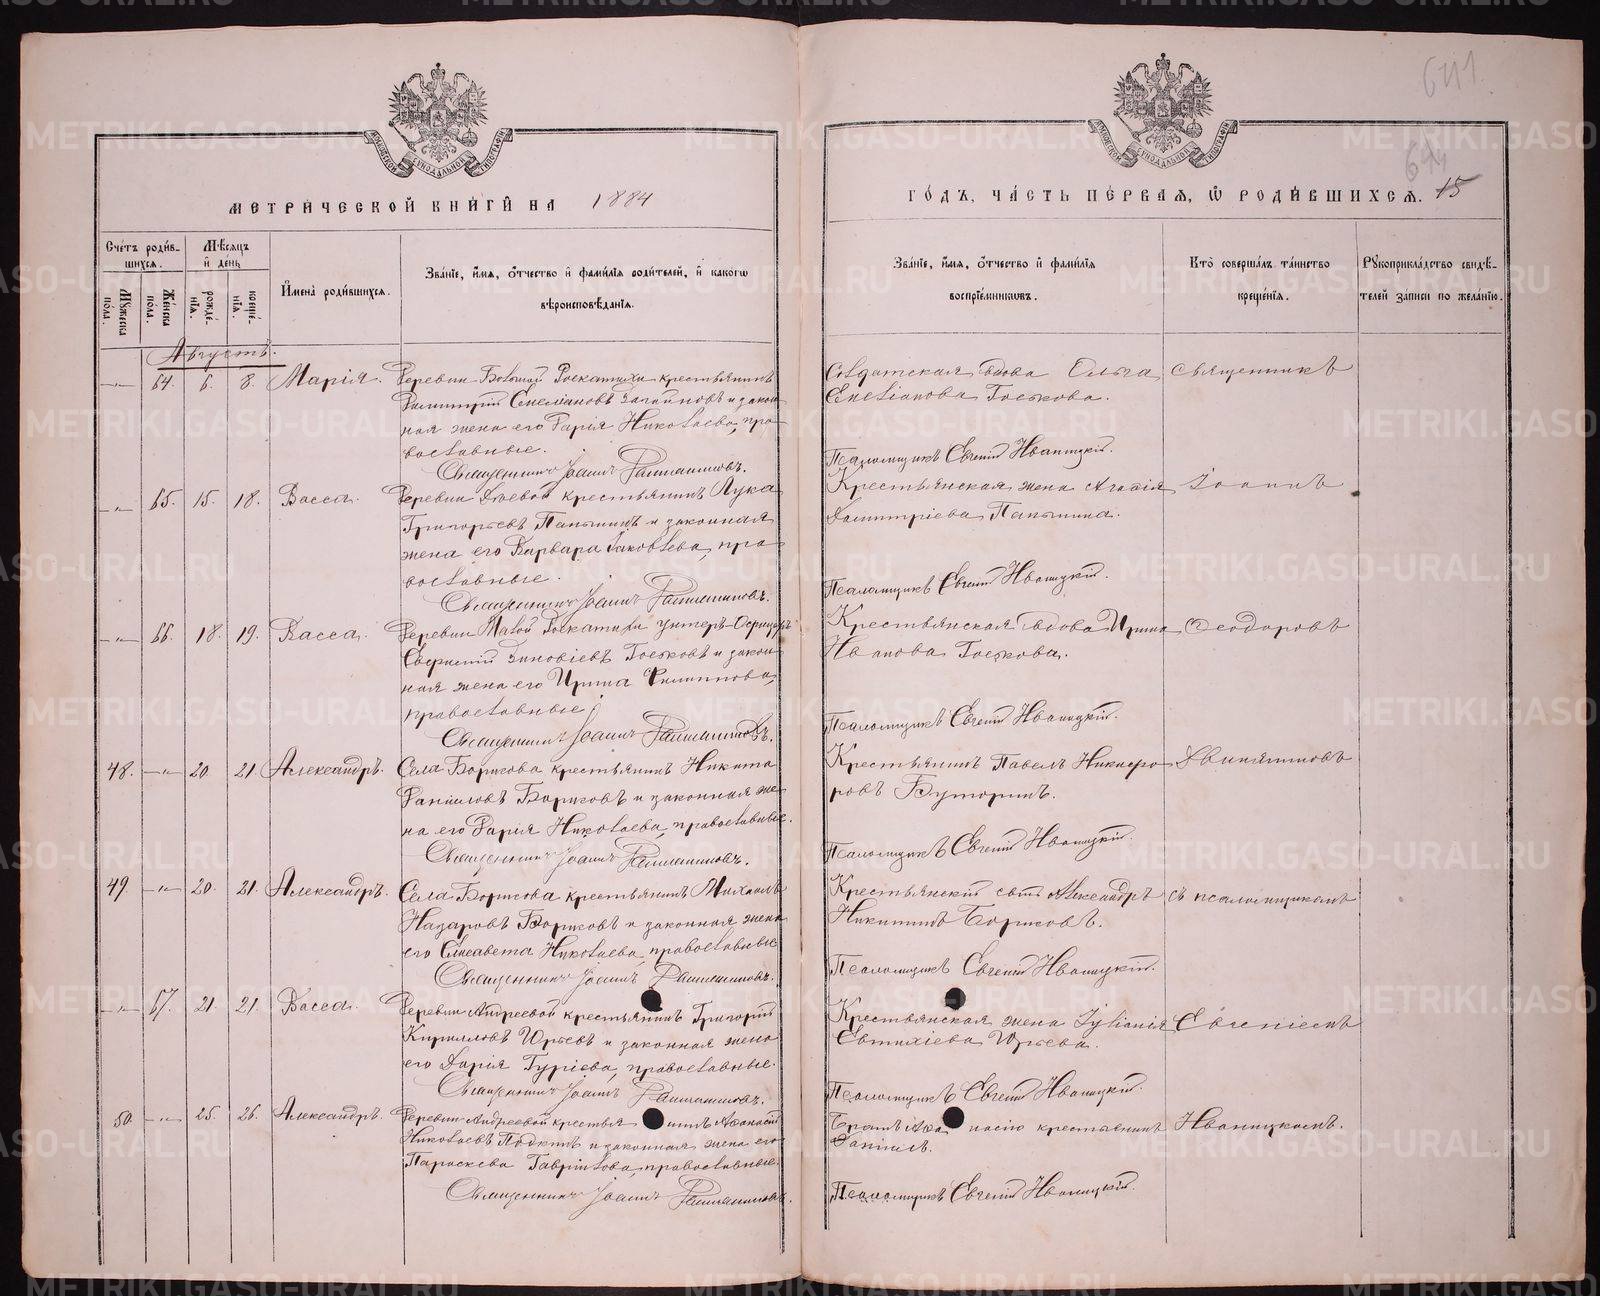 641.
64
15
МЕТРИЧЕСКОЙ КНИГИ НА 1884
ГОДЪ, ЧАСТЬ ПЕРВАЯ, Ѡ РОДИВШИХСЯ.
Счетъ родив-
шихся.
Мѣсяцъ
и день
Мужеска
пола.
Женска
пола.
рожде-
нія.
креще-
нія.
Имена родившихся.
Званіе, имя, отчество и фамилія родителей, и какого
вѣроисповѣданія.
Званіе, имя, отчество и фамилія
воспріемниковъ.
Кто совершалъ таинство
крещенія.
Рукоприкладство свидѣ-
телей записи по желанію.
Августъ.
64. 6. 8. Марія.
Деревни Большой Роскатихи крестьянинъ
Димитрій и закон-
ная жена его Дарія Николаева, пра-
вославные.
Священникъ Іоаннъ
Солдатская вдова Ольга
Госькова.
Псаломщикъ Евгеній Иваницкій.
Священникъ
65. 15. 18. Васса.
Деревни крестьянинъ Лука
Григорьевъ и законная
жена его Варвара Іаковлева, пра-
вославные.
Священникъ Іоаннъ
Крестьянская жена Агафія
Димитріева
Псаломщикъ Евгеній Иваницкій.
Іоаннъ
66. 18. 19. Васса.
Деревни Малой Роскатихи унтеръ-офицеръ
Зиновіевъ Госьковъ и закон-
ная жена его Ирина Филиппова,
православные.
Священникъ Іоаннъ
Крестьянская вдова Ирина
Иванова Госькова.
Псаломщикъ Евгеній Иваницкій.
Ѳеодоровъ
48. 20. 21. Александръ.
Села Борисова крестьянинъ Никита
Даніиловъ Борисовъ и законная же-
на его Дарія Николаева, православные.
Священникъ Іоаннъ
Крестьянинъ Павелъ Никифо-
ровъ Буторинъ.
Псаломщикъ Евгеній Иваницкій.
49. 20. 21. Александръ.
Села Борисова крестьянинъ Михаилъ
Назаровъ Борисовъ и законная жена
его Елисавета Николаева, православные
Священникъ Іоаннъ
Крестьянскій сынъ Александръ
Никитинъ Борисовъ.
Псаломщикъ Евгеній Иваницкій.
съ псаломщикомъ
67. 21. 21. Васса.
Деревни Андреевой крестьянинъ Григорій
Кирилловъ Юрьевъ и законная жена
его Дарія Гуріева, православные.
Священникъ Іоаннъ
Крестьянская жена Іуліанія
Евтихіева Юрьева.
Псаломщикъ Евгеній Иваницкій.
Евгеніемъ
50. 25. 26. Александръ.
Деревни Андреевой Аѳанасій
Николаевъ и законная жена его
Параскева Гавріилова, православные.
Священникъ Іоаннъ
Братъ крестьянинъ
Даніилъ.
Псаломщикъ Евгеній Иваницкій.
Иваницкимъ.
METRIKI.GASO-URAL.RU